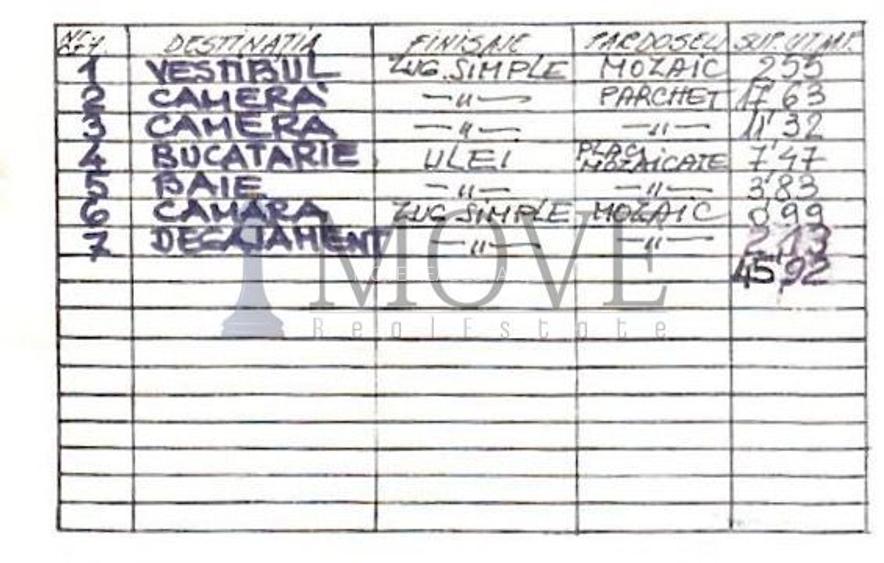 NR. CRT. DESTINAȚIA FINISAJE PARDOSELI SUP. UT. M.P.
1 VESTIBUL ZUG. SIMPLE MOZAIC 2'55
2 CAMERĂ —"— PARCHET 17'63
3 CAMERA —"— —"— 11'32
4 BUCATARIE ULEI PLACI MOZAICATE 7'47
5 BAIE —"— —"— 3'83
6 CAMARA ZUG SIMPLE MOZAIC 0'99
7 DEGAJAMENT —"— —"— 2'13
45'92
MOVE
Real Estate